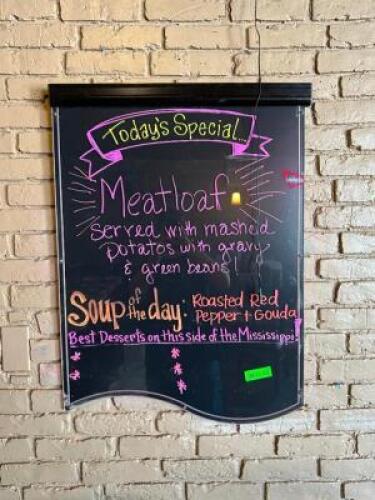 Today's Special...
Meatloaf
served with mashed
potatos with gravy
& green beans
Soup of the day: Roasted Red
Pepper + Gouda
Best Desserts on this side of the Mississippi!